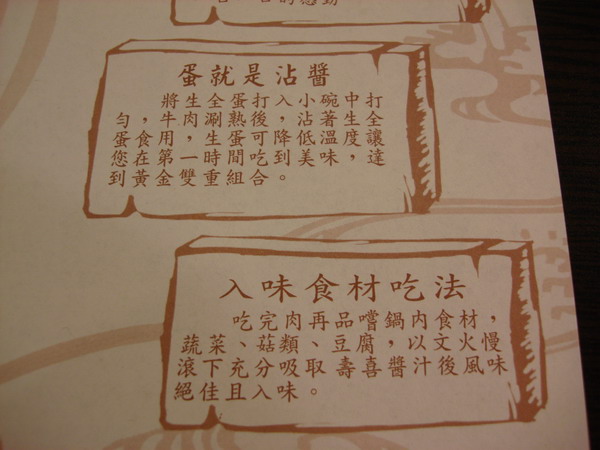 蛋就是沾醬
將生全蛋打入小碗中打
勻，牛肉涮熟後，沾著生全
蛋食用，生蛋可降低溫度，讓
您在第一時間吃到美味，達
到黃金雙重組合。
入味食材吃法
吃完肉再品嚐鍋內食材，
蔬菜、菇類、豆腐，以文火慢
滾下充分吸取壽喜醬汁後風味
絕佳且入味。